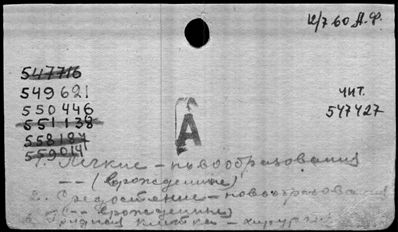 12/7 60 А.Ф.
547716
549621
550446
551138
558187
559014
чит.
547427
А
1. Легкие – новообразования
-- (врожденные)
2. Средостение – новообразования
-- врожденные)
3. Грудная клетка – хирургия